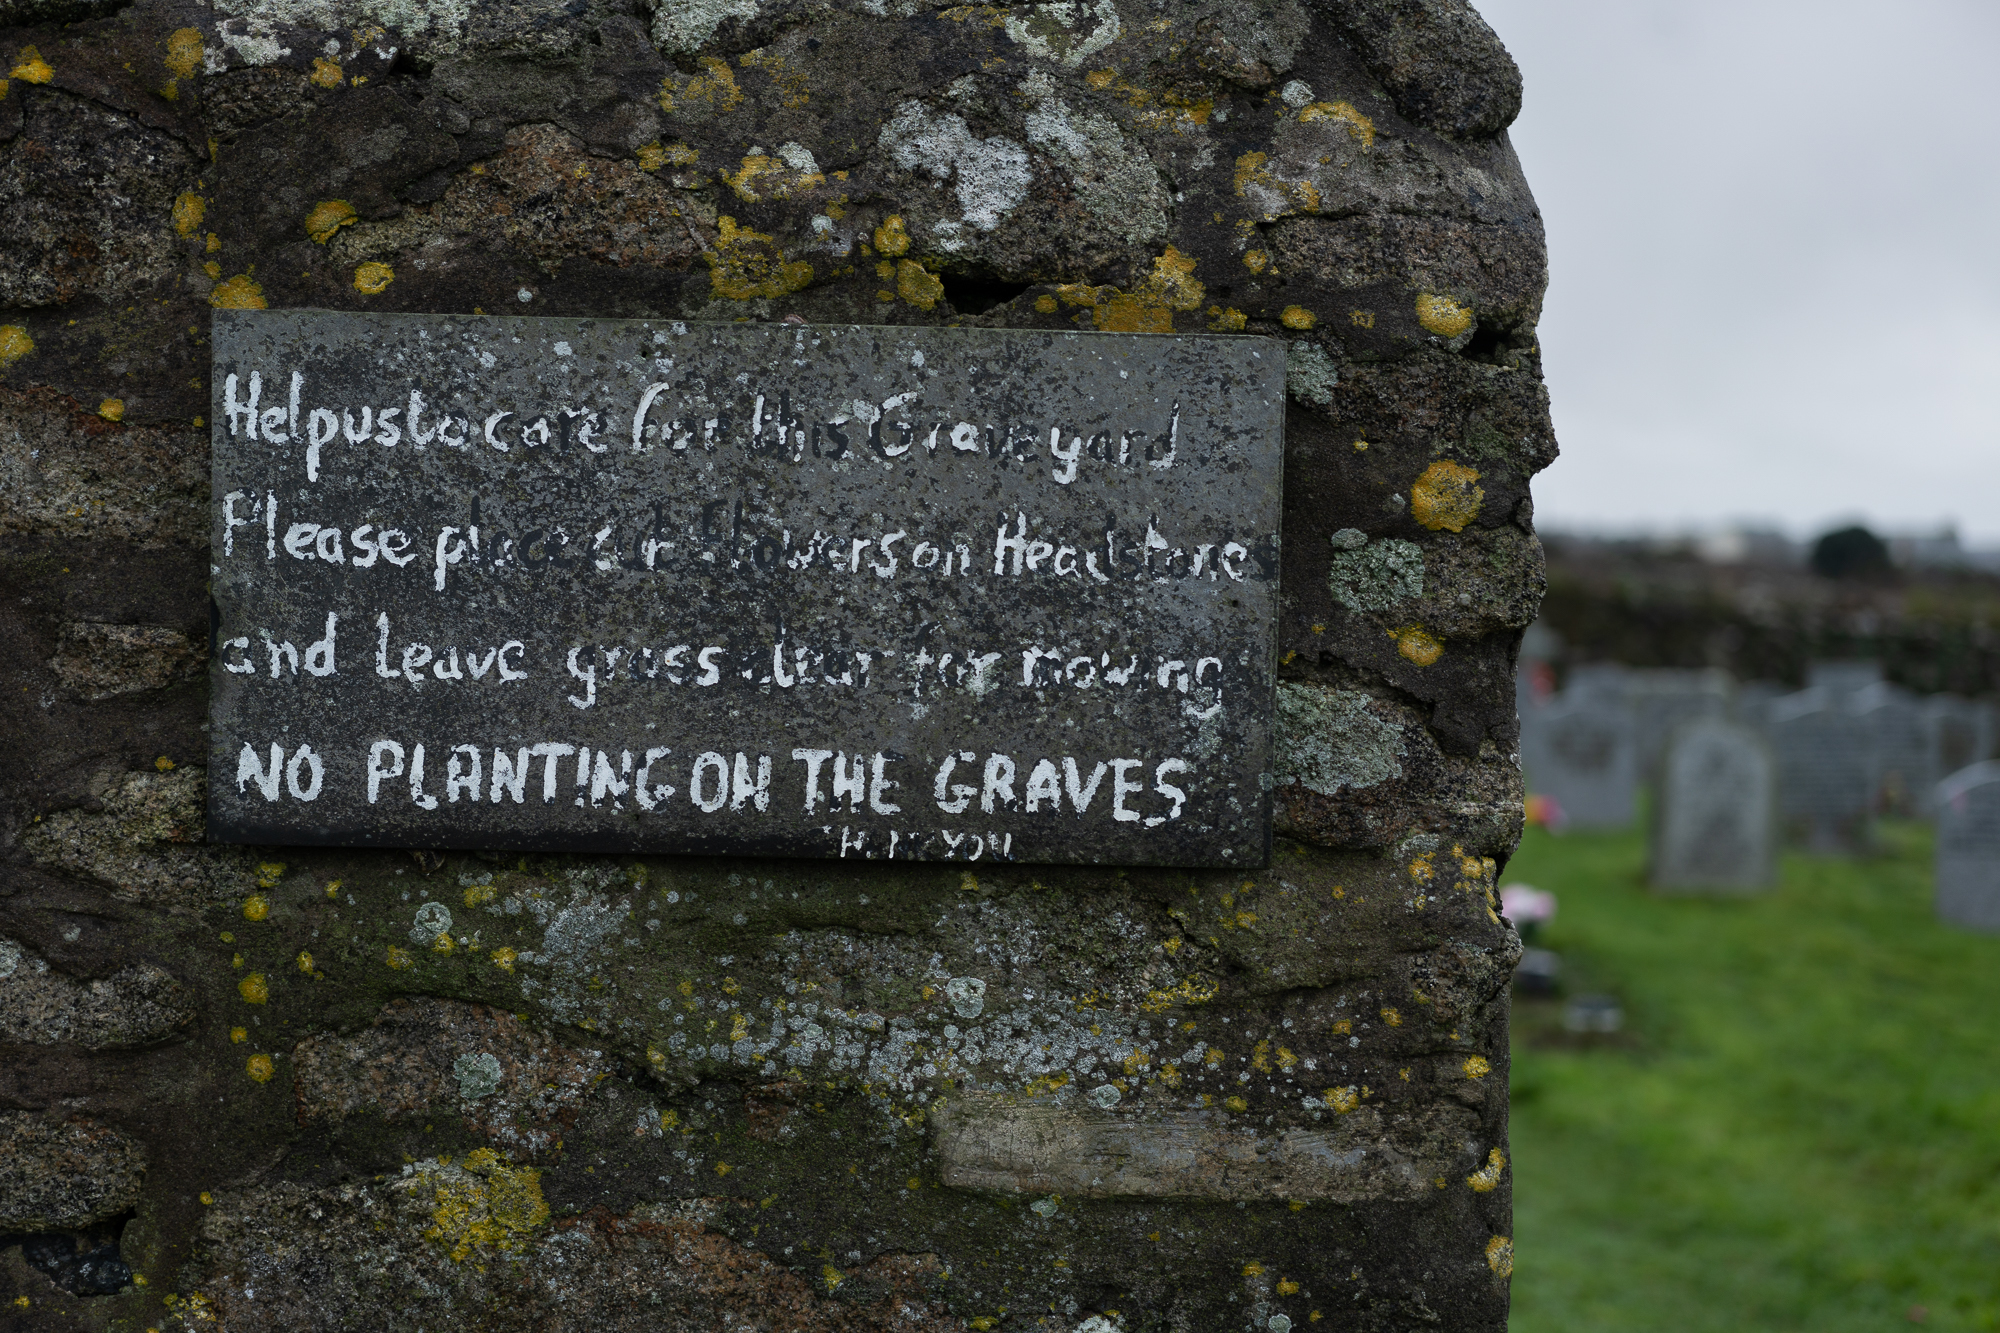 Help us to care for this Graveyard
Please place cut flowers on Headstones
and leave grass clear for mowing
NO PLANTING ON THE GRAVES
YOU